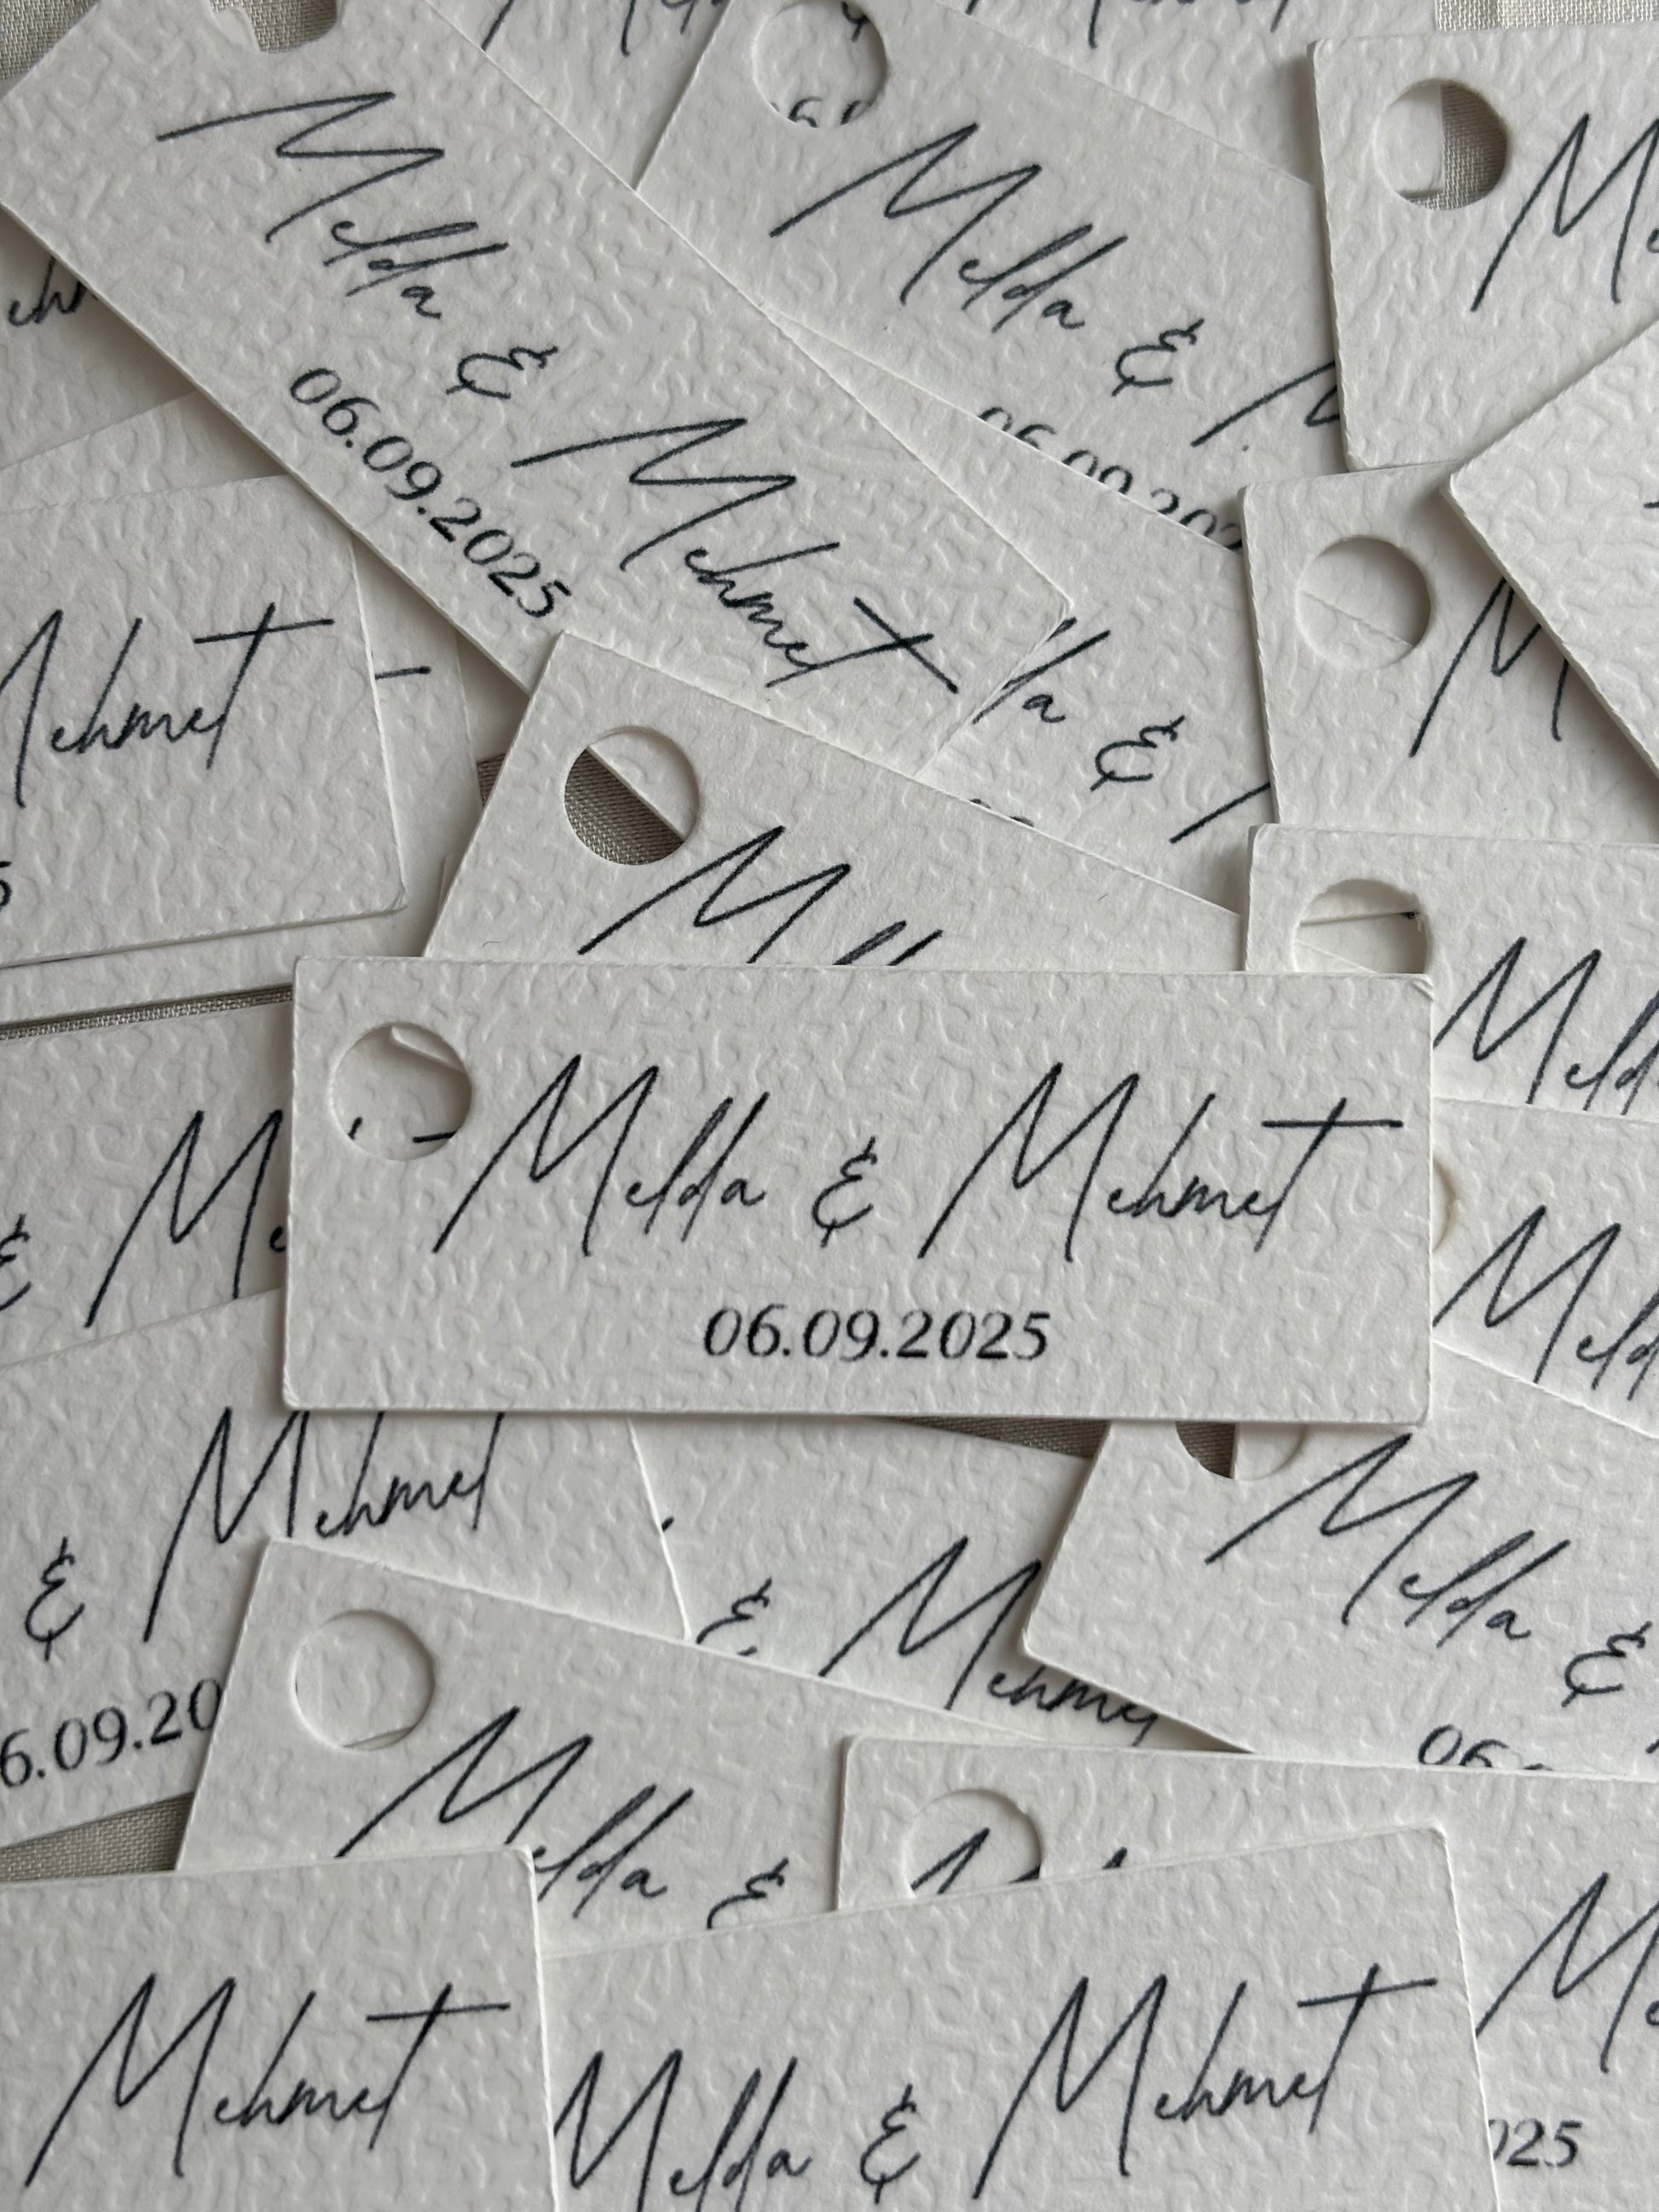 Melda & Mehmet
06.09.2025
Melda &
06.09.202
Mehmet
&
Melda & Mehmet
06.09.2025
& Mehmet
6.09.20
& Mehmet
Melda &
Melda &
Mehmet
Melda & Mehmet
025